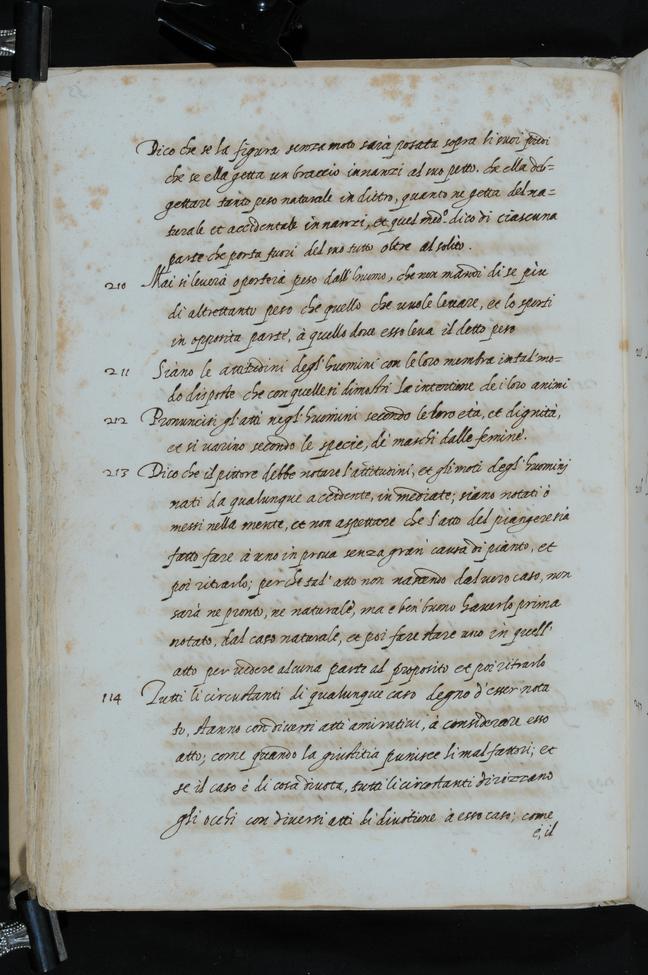 Dico che se la figura senza moto sarà posata sopra li suoi piedi
che se ella getta un braccio innanzi al suo petto. che ella deb=
gettare tanto peso naturale in dietro, quanto ne getta del na=
turale et accidentale innanzi, et quel med.º dico di ciascuna
parte che porta fuori del suo tutto oltre al solito.
210 Mai si leverà o porterà peso dall' huomo, che non mandi di se più
di altrettanto peso che quello che vuole levare, et lo sporti
in opposita parte, à quello dove esso leva il detto peso
211 Siano le attitudini degl' huomini con le loro membra in tal mo=
do disposte che con quelle si dimostri la intentione de i loro animi
212 Pronuncisi gl' atti negl' huomini secondo le loro età, et dignità,
et si varino secondo le specie, de maschi dalle femine.
213 Dico che il pittore debbe notare l'attitudini, et gli moti degl' huominj
nati da qualunque accidente, in mediate; siano notati ò
messi nella mente, et non aspettare che l'atto del piangere sia
fatto fare à uno in prova senza gran causa di pianto, et
poi ritrarlo; perche tal' atto non nascendo dal vero caso, non
sarà ne pronto, ne naturale, ma e ben' buono haverlo prima
notato, dal caso naturale, et poi fare stare uno in quell'
atto per vedere alcuna parte al proposito et poi ritrarlo
114 Tutti li circustanti di qualunque caso degno d'esser nota
to, stanno con diversi atti amirativi, à considerare esso
atto; come quando la giustitia punisce li mal fattori; et
se il caso è di cosa divota, tutti li circostanti dirizzano
gli occhi con diversi atti di divotione à esso caso; come
è, il